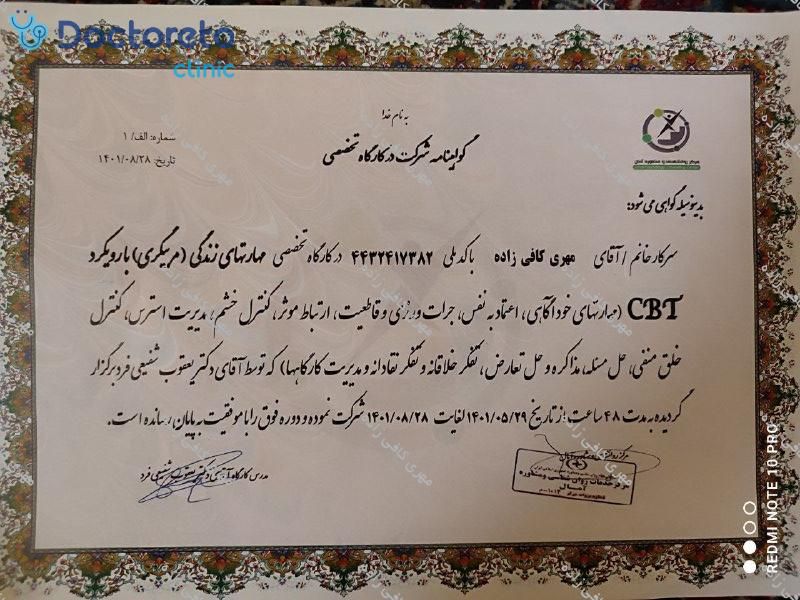 Doctoreto
clinic
به نام خدا
گواهینامه شرکت در کارگاه تخصصی
شماره: الف/ ۱
تاریخ: ۱۴۰۱/۰۸/۲۸
بدینوسیله گواهی می شود:
سرکار خانم / آقای مهری کافی زاده با کد ملی ۴۴۳۲۴۱۷۳۸۲ در کارگاه تخصصی مهارتهای زندگی (مربیگری) با رویکرد
CBT (مهارتهای خودآگاهی، اعتماد به نفس، جرات ورزی و قاطعیت، ارتباط موثر، کنترل خشم، مدیریت استرس، کنترل
خلق منفی، حل مسئله، مذاکره و حل تعارض، تفکر خلاقانه و تفکر نقادانه و مدیریت کارگاهها) که توسط آقای دکتر یعقوب شفیعی فرد برگزار
گردیده به مدت ۴۸ ساعت از تاریخ ۱۴۰۱/۰۵/۲۹ لغایت ۱۴۰۱/۰۸/۲۸ شرکت نموده و دوره فوق را با موفقیت به پایان رسانده است.
مرکز خدمات روان شناسی و مشاوره
مدرس کارگاه آقای دکتر یعقوب شفیعی فرد
REDMI NOTE 10 PRO
مهری کافی زاده